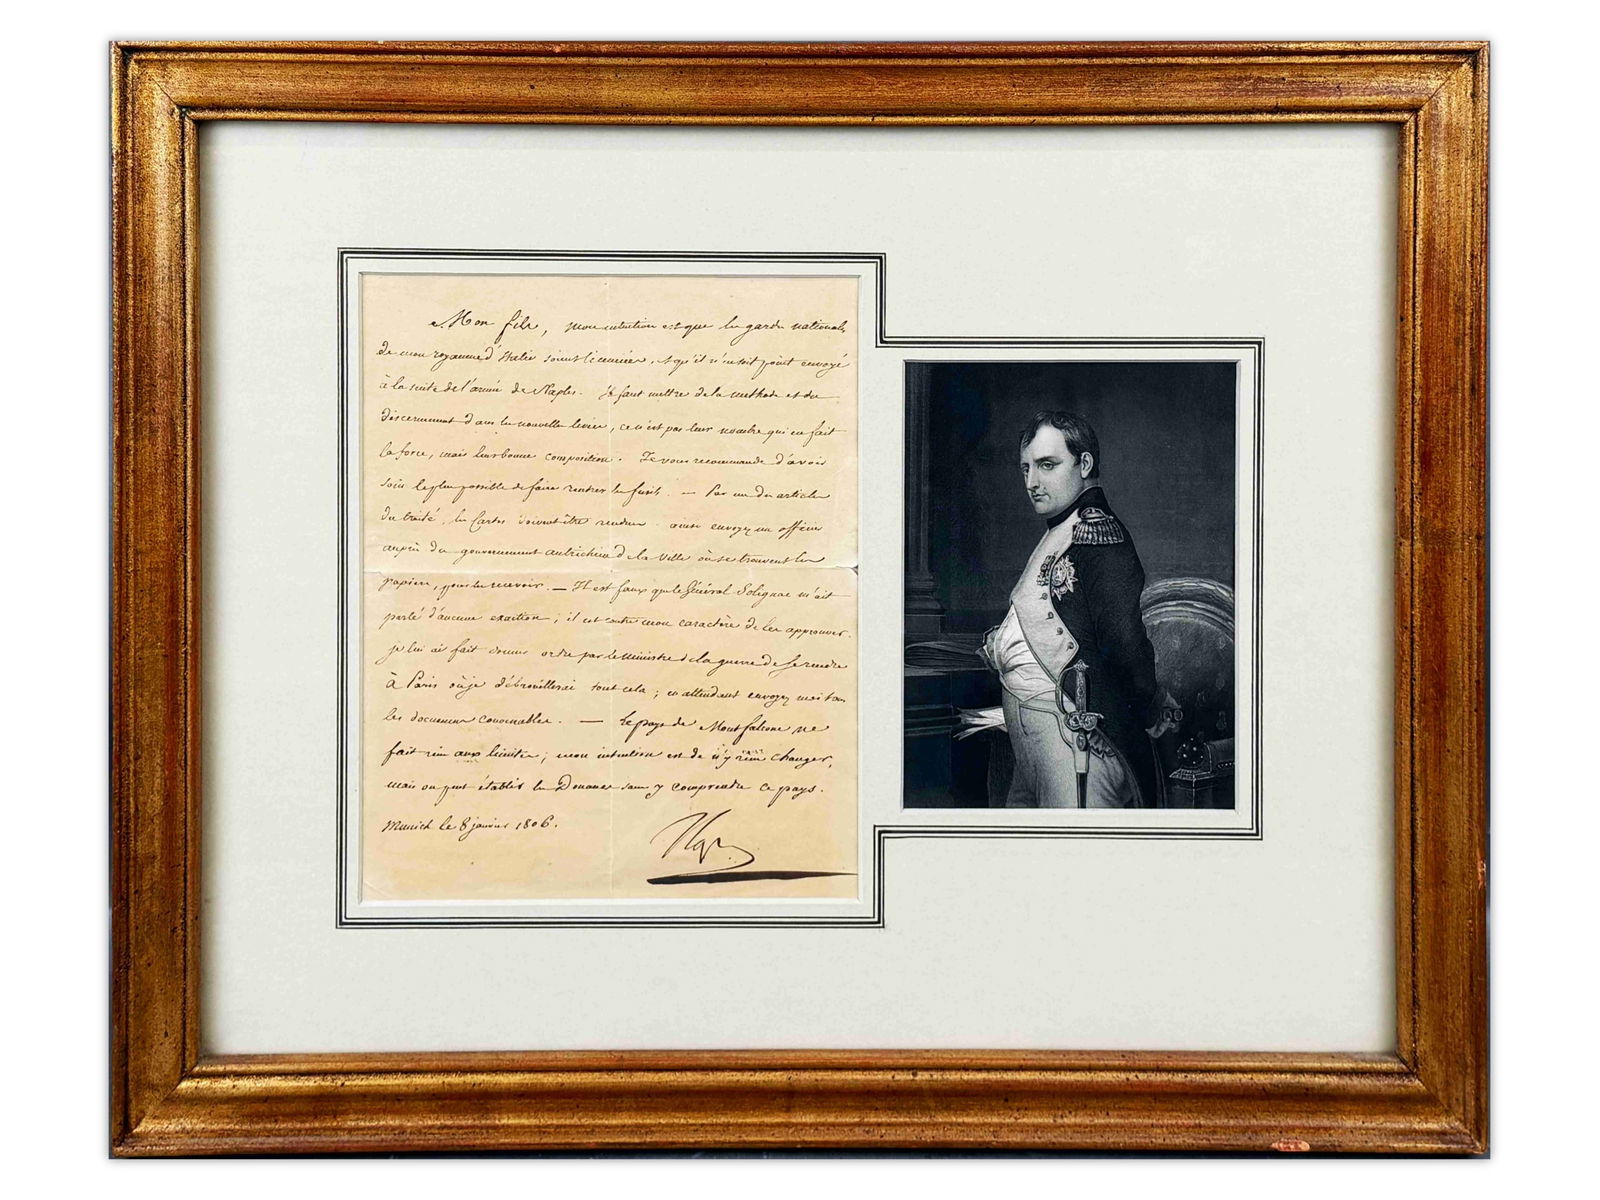 Mon fils, mon intention est que les gardes nationales
de mon royaume d'Italie soient licenciées, et qu'il n'en soit point envoyé
à la suite de l'armée de Naples. Il faut mettre de la méthode et du
discernement dans les nouvelles levées, ce n'est pas leur nombre qui en fait
la force, mais leur bonne composition. Je vous recommande d'avoir
soin le plus possible de faire rentrer les fusils. — Par un des articles
du traité, les Cartes doivent être rendues. ainsi envoyez un officier
auprès du gouvernement autrichien de la Ville où se trouvent les
papiers, pour les recevoir. — Il est faux que le Général Solignac m'ait
parlé d'aucune exaction; il est contre mon caractère de les approuver.
je lui ai fait donner ordre par le Ministre de la guerre de se rendre
à Paris où je débrouillerai tout cela; en attendant envoyez moi tous
les documens convenables. — Le pays de Montfalcone ne
fait rien aux limites; mon intention est de n'y rien changer,
mais on peut établir les Douanes sans y comprendre ce pays.
Munich le 8 janvier 1806.
Nap